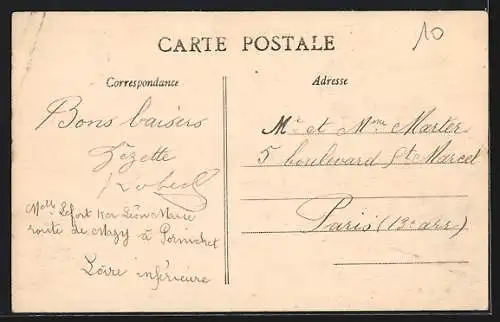 10
CARTE POSTALE
Correspondance
Bons baisers
Zézette
Robert
Melle Lefort
route de Mazy à Pornichet
Loire inférieure
Adresse
Mr et Mme Marter
5 boulevard St Marcel
Paris (13e arr.)